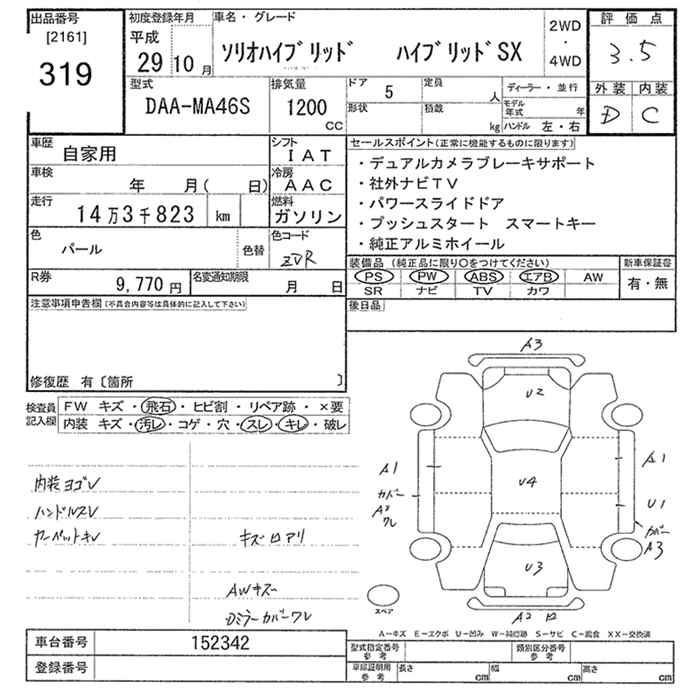 出品番号
[2161]
319
初度登録年月
平成
29 10 月
車名・グレード
ソリオハイブリッド ハイブリッドSX
2WD
・
4WD
評価点
3.5
外装 内装
D C
型式
DAA-MA46S
排気量
1200
CC
ドア 5
定員 人
形状
積載 kg
ディーラー・並行
モデル年式 年
ハンドル 左・右
車歴
自家用
シフト
IAT
車検
年 月( 日)
冷房
AAC
走行
14万3千823 km
燃料
ガソリン
色
パール
色替
色コード
ZVR
R券
9,770 円
名変通知期限
月 日
セールスポイント(正常に機能するものに限ります)
・デュアルカメラブレーキサポート
・社外ナビTV
・パワースライドドア
・プッシュスタート スマートキー
・純正アルミホイール
装備品(純正品に限り〇をつけてください)
PS PW ABS エアB AW
SR ナビ TV カワ
新車保証書
有・無
後日品
注意事項申告欄(不具合内容等は具体的に記入して下さい)
修復歴 有〔箇所 〕
検査員
記入欄
FW キズ・飛石・ヒビ割・リペア跡・×要
内装 キズ・汚レ・コゲ・穴・スレ・キレ・破レ
内装ヨゴレ
ハンドルスレ
カーペットキレ
キズ ロアリ
AWキズ
Dミラーカバーワレ
A3
U2
A1
カバー
A2
ワレ
U4
A1
U1
カバー
A3
U3
A2
スペア
A−キズ E−エクボ U−凹み W−補修跡 S−サビ C−腐食 XX−交換済
車台番号
152342
登録番号
型式指定番号
参考
類別区分番号
参考
車庫証明用
参考
長さ cm
幅 cm
高さ cm